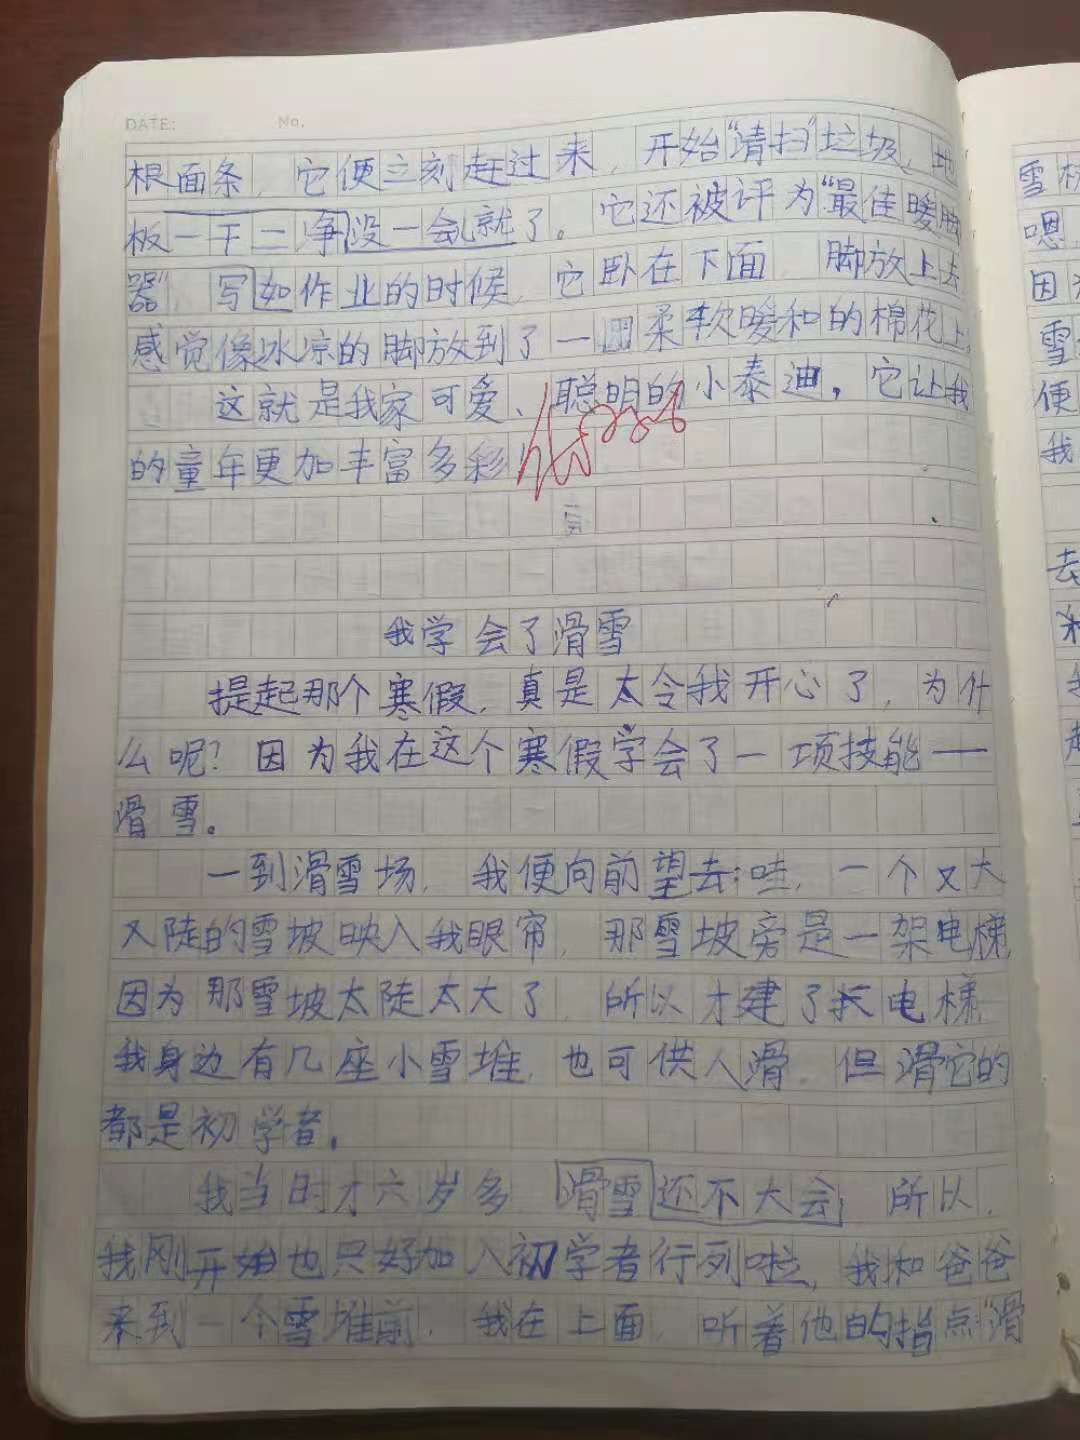 DATE: No.
根面条，它便立刻赶过来，开始“清扫”垃圾，地
板一干二净没一会儿就了。它还被评为“最佳暖脚
器”，写如作业的时候，它卧在下面，脚放上去
感觉像冰凉的脚放到了一团柔软暖和的棉花上。
这就是我家可爱、聪明的小泰迪，它让我
的童年更加丰富多彩！
我学会了滑雪
提起那个寒假，真是太令我开心了，为什
么呢？因为我在这个寒假学会了一项技能——
滑雪。
一到滑雪场，我便向前望去：哇，一个又大
又陡的雪坡映入我眼帘，那雪坡旁是一架电梯，
因为那雪坡太陡太大了，所以才建了电梯，
我身边有几座小雪堆，也可供人滑，但滑它的
都是初学者。
我当时才六岁多，滑雪还不大会，所以，
我刚开始也只好加入初学者行列啦，我和爸爸
来到一个雪堆前，我在上面，听着他的指点“滑
雪
嗯，
因
雪
便
我
去